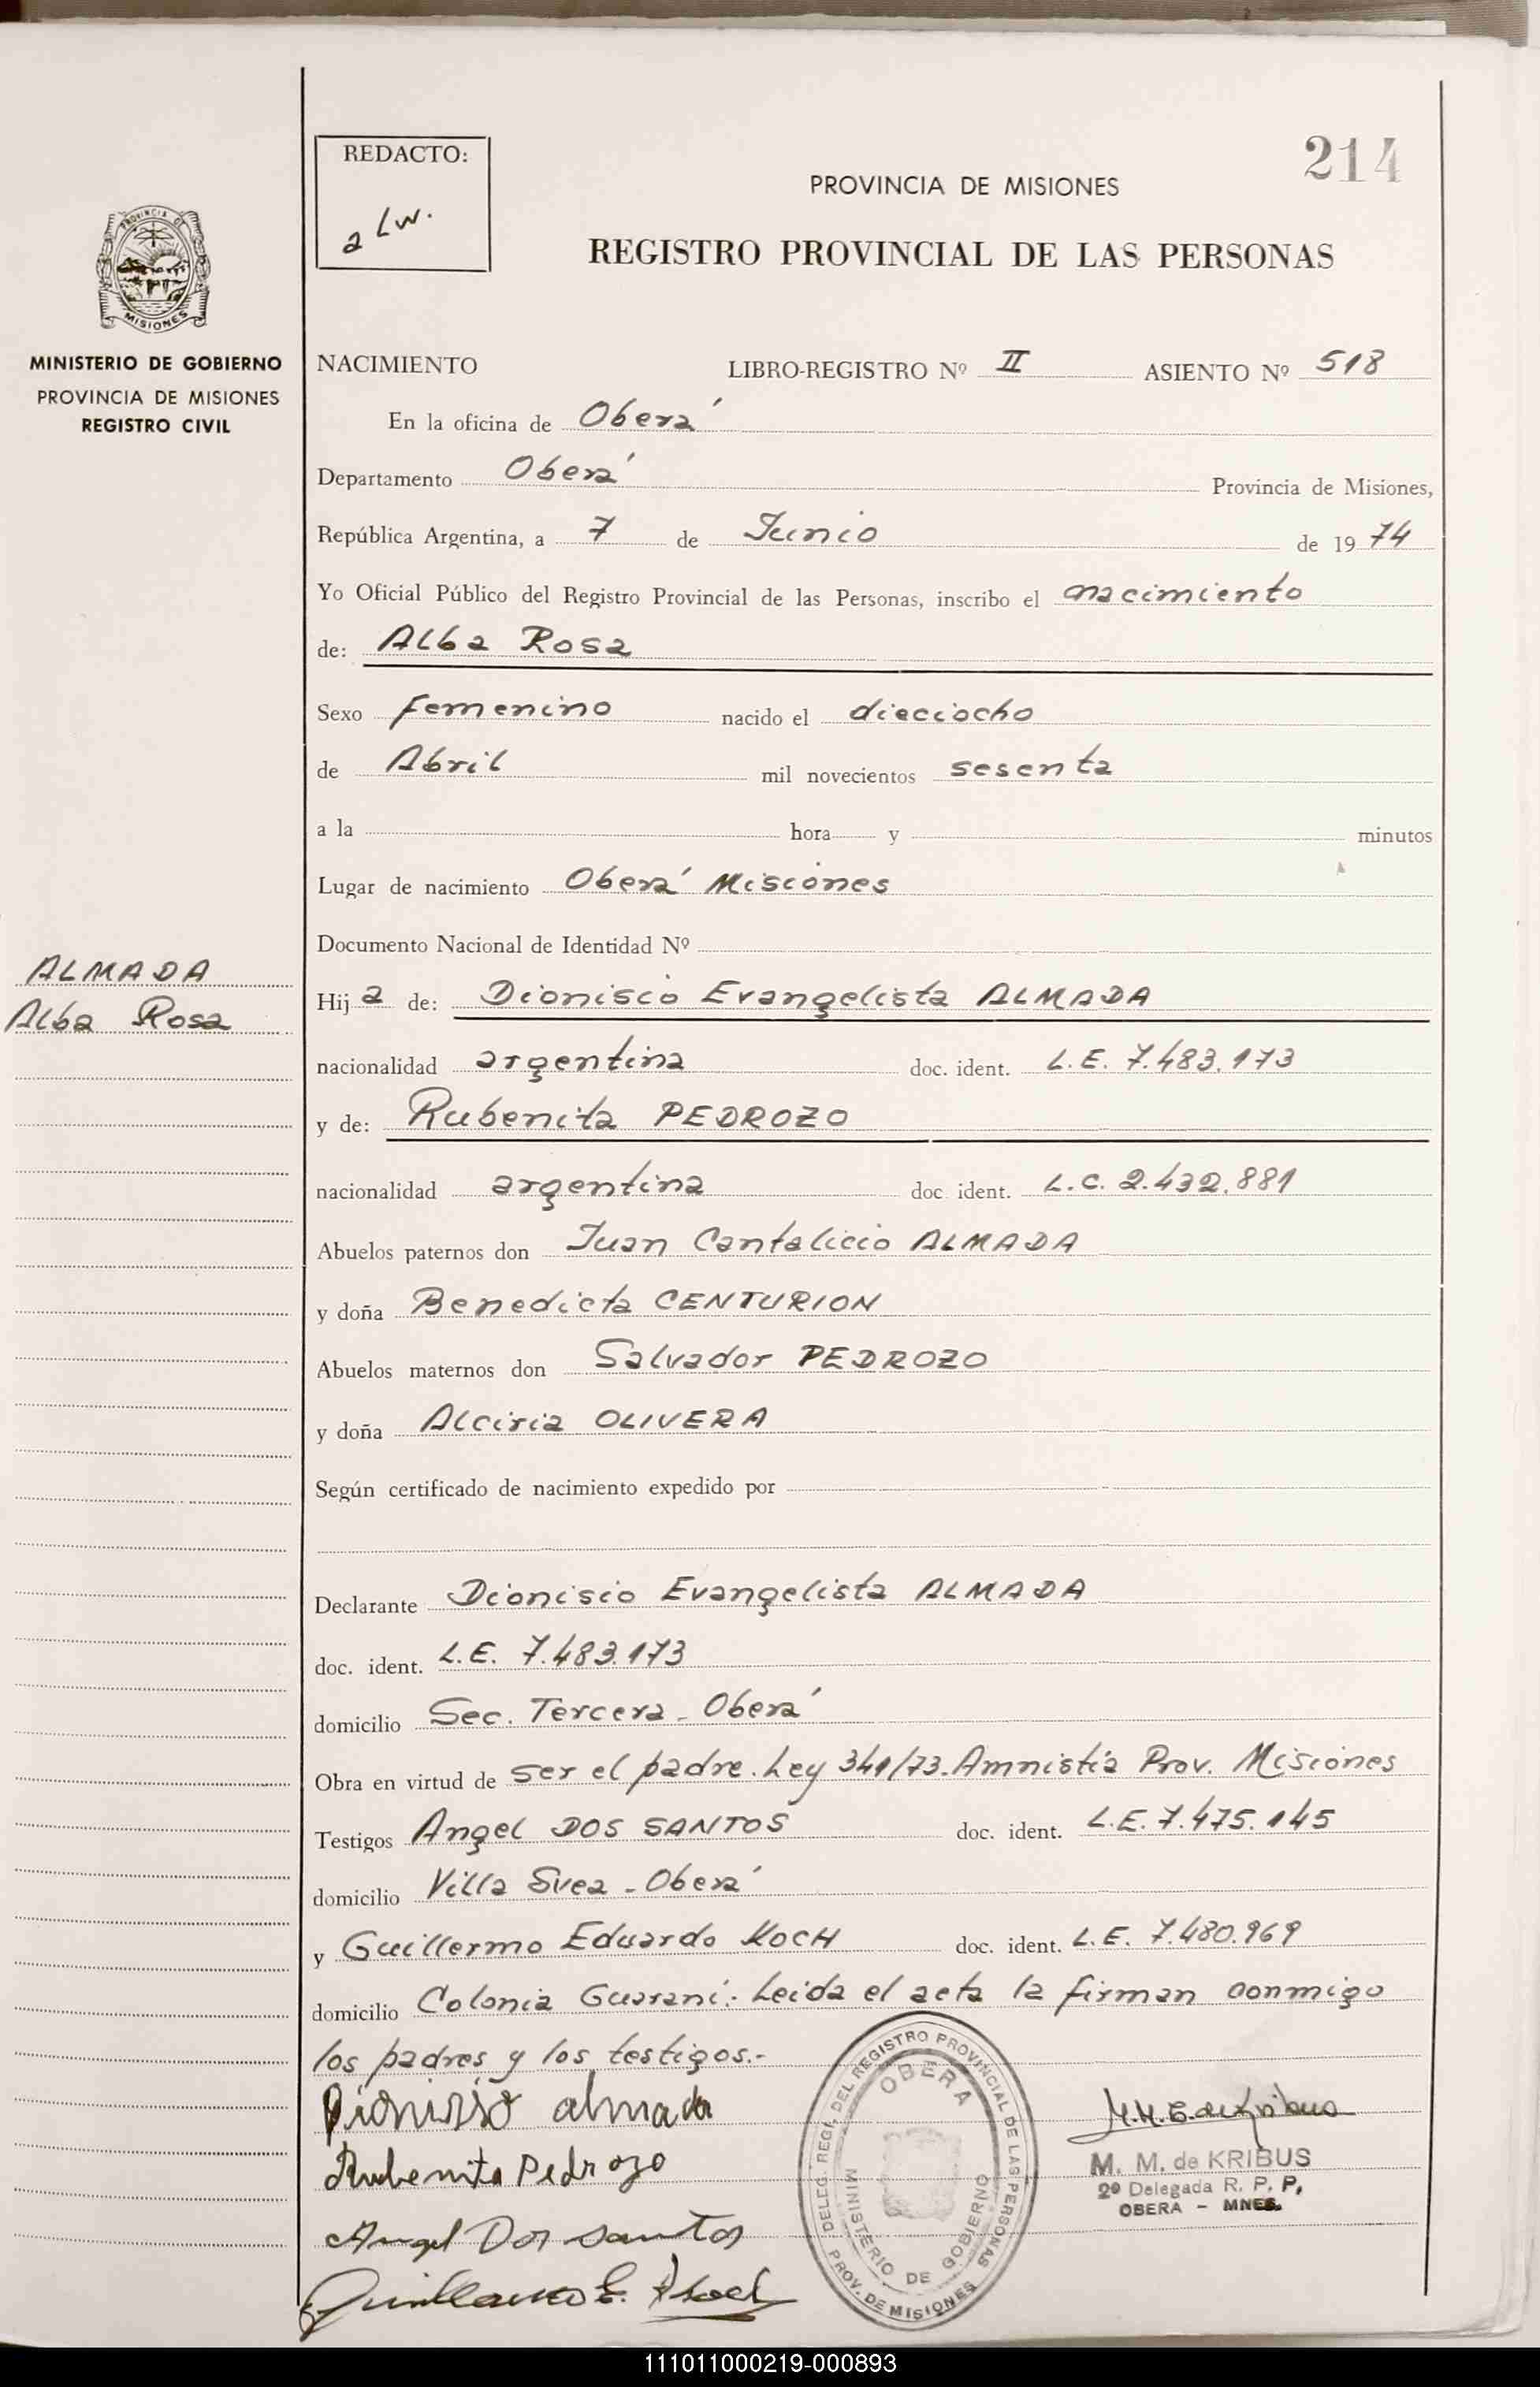 214
REDACTO:
a Lw.
PROVINCIA DE MISIONES
REGISTRO PROVINCIAL DE LAS PERSONAS
PROVINCIA DE
MISIONES
MINISTERIO DE GOBIERNO
PROVINCIA DE MISIONES
REGISTRO CIVIL
NACIMIENTO LIBRO-REGISTRO Nº II ASIENTO Nº 518
En la oficina de Oberá
Departamento Oberá Provincia de Misiones,
República Argentina, a 7 de Junio de 1974
Yo Oficial Público del Registro Provincial de las Personas, inscribo el nacimiento
de: Alba Rosa
Sexo femenino nacido el dieciocho
de Abril mil novecientos sesenta
a la hora y minutos
Lugar de nacimiento Oberá Misiones
Documento Nacional de Identidad Nº
ALMADA
Alba Rosa
Hija de: Dionisio Evangelista ALMADA
nacionalidad argentina doc. ident. L.E. 7.483.173
y de: Rubenita PEDROZO
nacionalidad argentina doc. ident. L.C. 2.432.881
Abuelos paternos don Juan Cantalicio ALMADA
y doña Benedicta CENTURION
Abuelos maternos don Salvador PEDROZO
y doña Alciria OLIVERA
Según certificado de nacimiento expedido por
Declarante Dionisio Evangelista ALMADA
doc. ident. L.E. 7.483.173
domicilio Sec. Tercera - Oberá
Obra en virtud de ser el padre. Ley 341/73. Amnistia Prov. Misiones
Testigos Angel DOS SANTOS doc. ident. L.E. 7.475.145
domicilio Villa Svea - Oberá
y Guillermo Eduardo KOCH doc. ident. L.E. 7.480.969
domicilio Colonia Guaraní.- Leida el acta la firman conmigo
los padres y los testigos.-
Dionisio almada
Rubenita Pedrozo
Angel Dos Santos
Guillermo E. Koch
DELEG. REGI. DEL REGISTRO PROVINCIAL DE LAS PERSONAS
OBERA
MINISTERIO DE GOBIERNO
PROV. DE MISIONES
M. M. de KRIBUS
2º Delegada R. P. P.
OBERA - MNES.
111011000219-000893